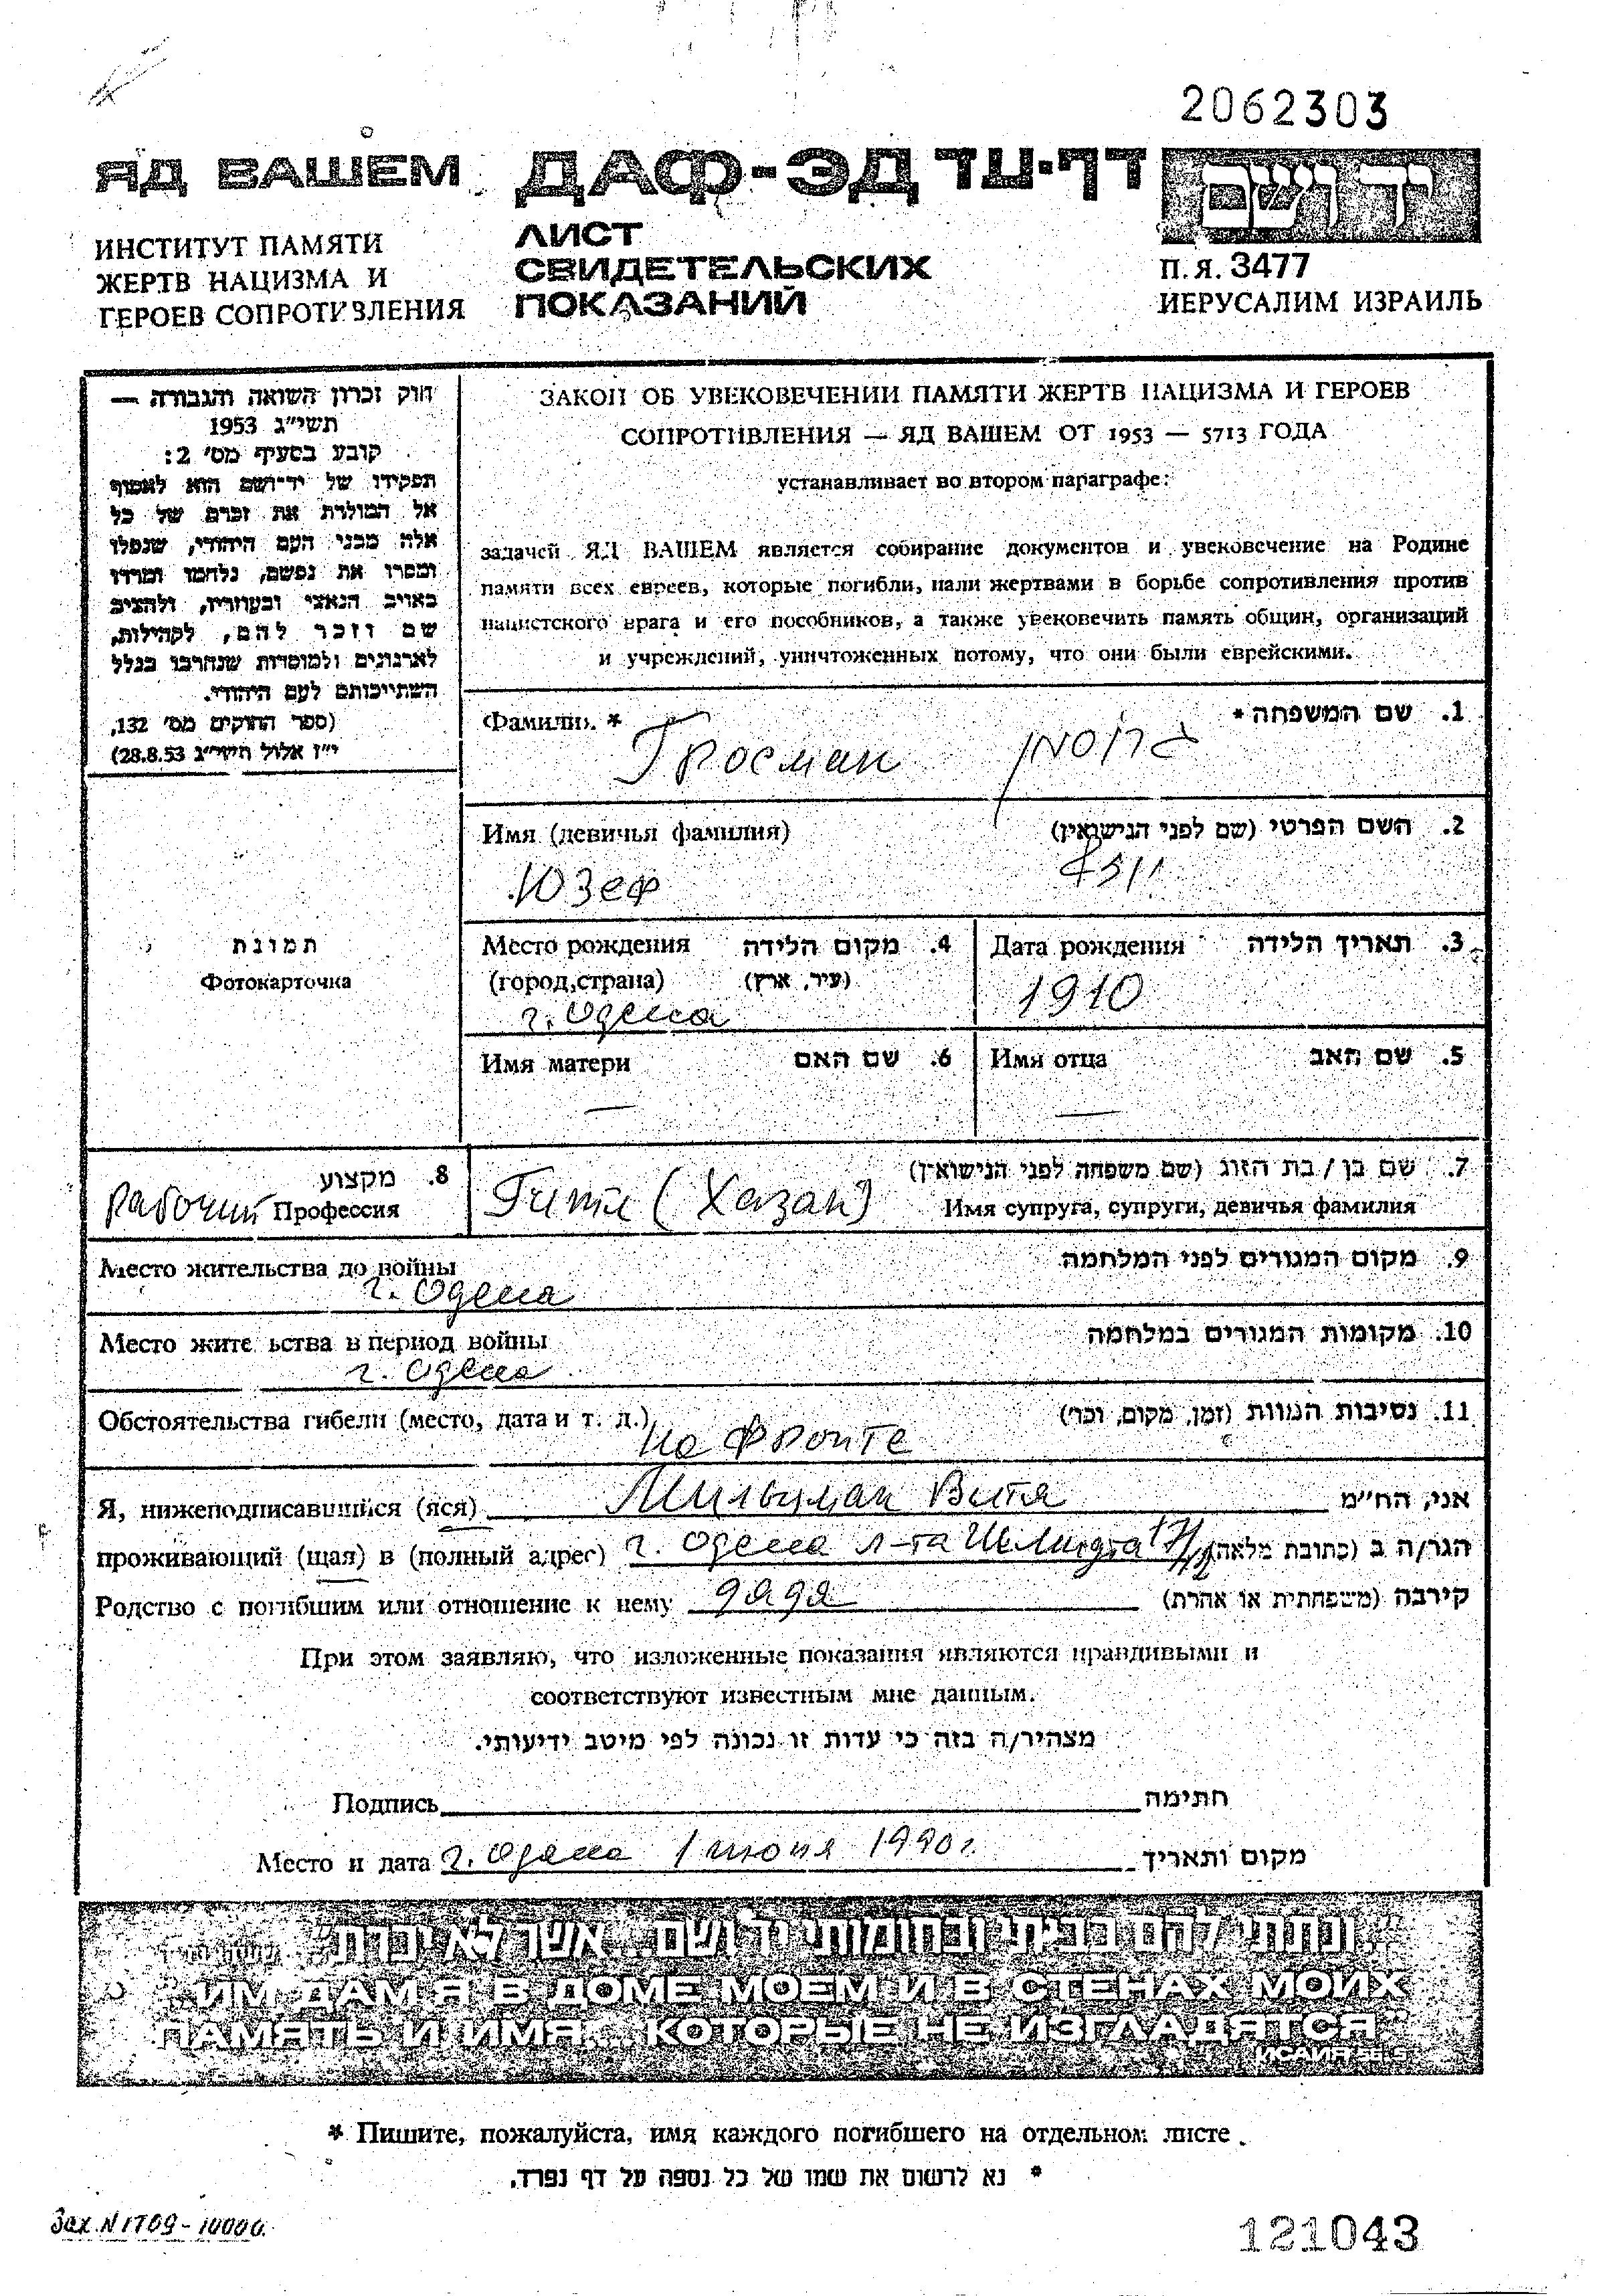 2062303
ЯД ВАШЕМ ДАФ-ЭД דף-עד יד ושם
ИНСТИТУТ ПАМЯТИ
ЖЕРТВ НАЦИЗМА И
ГЕРОЕВ СОПРОТИВЛЕНИЯ
ЛИСТ
СВИДЕТЕЛЬСКИХ
ПОКАЗАНИЙ
П.Я. 3477
ИЕРУСАЛИМ ИЗРАИЛЬ
חוק זכרון השואה והגבורה —
תשי״ג 1953
קובע בסעיף מס׳ 2:
תפקידו של יד־ושם הוא לאסוף
אל המולדת את זכרם של כל
אלה מבני העם היהודי, שנפלו
ומסרו את נפשם, נלחמו ומרדו
באויב הנאצי ובעוזריו, ולהציב
שם וזכר להם, לקהילות,
לארגונים ולמוסדות שנחרבו בגלל
השתייכותם לעם היהודי.
(ספר החוקים מס׳ 132,
י״ז אלול תשי״ג 28.8.53)
ЗАКОН ОБ УВЕКОВЕЧЕНИИ ПАМЯТИ ЖЕРТВ НАЦИЗМА И ГЕРОЕВ
СОПРОТИВЛЕНИЯ — ЯД ВАШЕМ ОТ 1953 — 5713 ГОДА
устанавливает во втором параграфе:
задачей ЯД ВАШЕМ является собирание документов и увековечение на Родине
памяти всех евреев, которые погибли, пали жертвами в борьбе сопротивления против
нацистского врага и его пособников, а также увековечить память общин, организаций
и учреждений, уничтоженных потому, что они были еврейскими.
Фамилия * 1. שם המשפחה *
Гросман גרוסמן
Имя (девичья фамилия) 2. השם הפרטי (שם לפני הנישואין)
Юзеф
תמונת
Фотокарточка
Место рождения 4. מקום הלידה
(город,страна) (עיר, ארץ)
г. Одесса
Дата рождения 3. תאריך הלידה
1910
Имя матери 6. שם האם
—
Имя отца 5. שם האב
—
8. מקצוע
рабочий Профессия
7. שם בן / בת הזוג (שם משפחה לפני הנישואין)
Гитя (Хазан) Имя супруга, супруги, девичья фамилия
Место жительства до войны 9. מקום המגורים לפני המלחמה
г. Одесса
Место жите ьства в период войны 10. מקומות המגורים במלחמה
г. Одесса
Обстоятельства гибели (место, дата и т. д.) 11. נסיבות המוות (זמן, מקום, וכו׳)
На фронте
Я, нижеподписавшийся (яся) Мильман Витя אני, הח״מ
проживающий (щая) в (полный адрес) г. Одесса הגר/ה ב (כתובת מלאה)
Родство с погибшим или отношение к нему дядя קירבה (משפחתית או אחרת)
При этом заявляю, что изложенные показания являются правдивыми и
соответствуют известным мне данным.
מצהיר/ה בזה כי עדות זו נכונה לפי מיטב ידיעותי.
Подпись חתימה
Место и дата г. Одесса 1 июня 1990г. מקום ותאריך
״..ונתתי להם בביתי ובחומותי יד ושם... אשר לא יכרת״
„ИМ ДАМ Я В ДОМЕ МОЕМ И В СТЕНАХ МОИХ
ПАМЯТЬ И ИМЯ... КОТОРЫЕ НЕ ИЗГЛАДЯТСЯ"
ИСАИЯ 56.5
* Пишите, пожалуйста, имя каждого погибшего на отдельном листе.
* נא לרשום את שמו של כל נספה על דף נפרד.
Зак. N 1709-10000.
121043